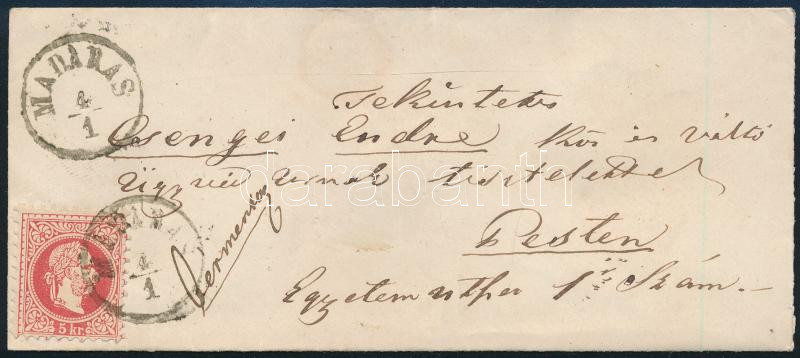 MADARAS
4
1
Tekintetes
Csengei Endre köz és váltó
Ügyvéd Urnak tisztelettel
Pesten
Egyetem utcza 1 Szám.-
MADARAS
4
1
5 kr.
darabanth